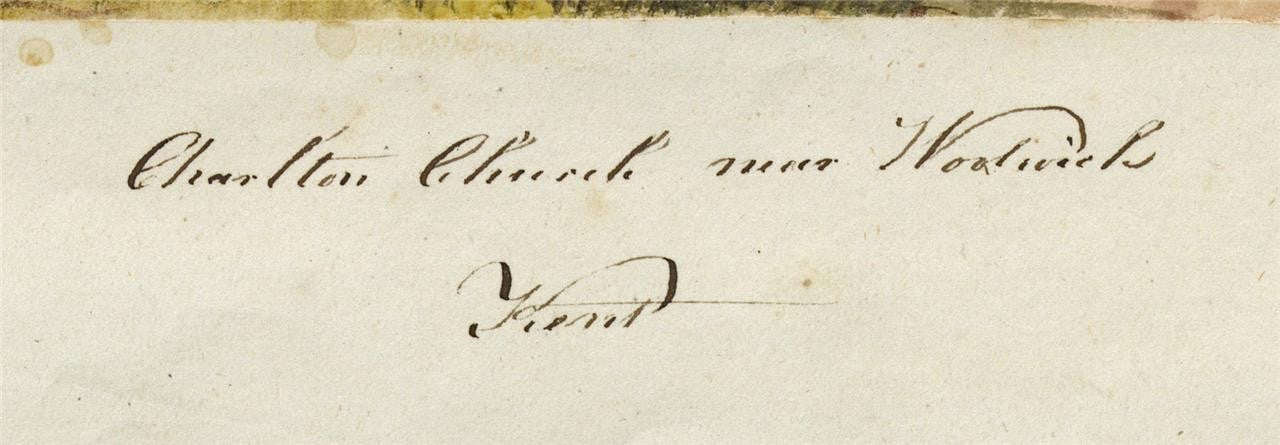 Charlton Church near Woolwich
Kent